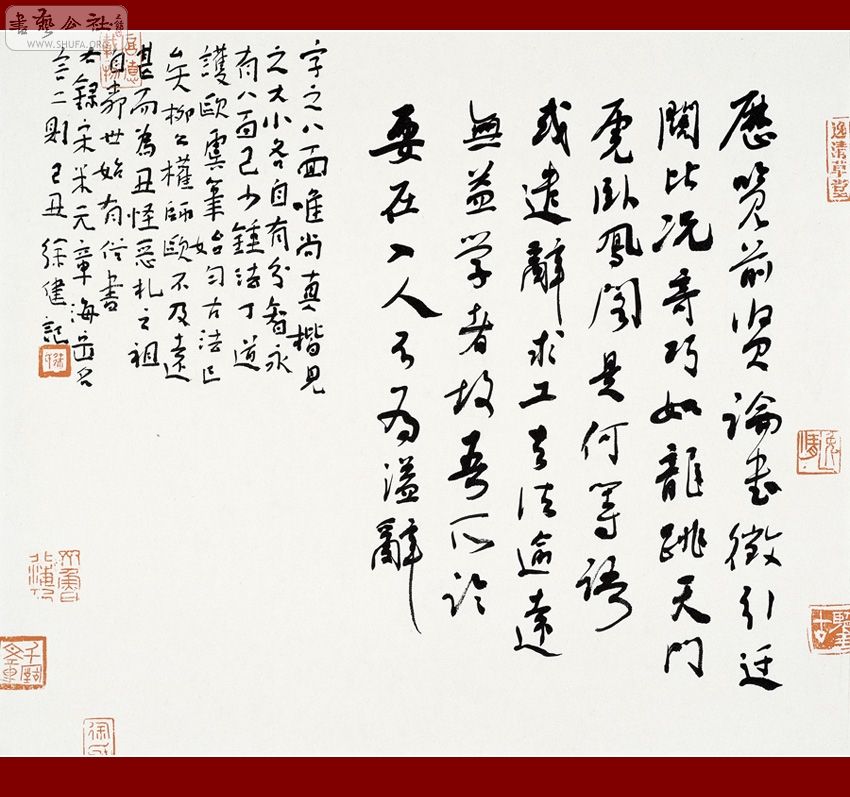 書藝公社
WWW.SHUFA.ORG
逸清草堂
歷览前贤論書徵引迂
闊比况奇巧如龍跳天門
虎臥鳳閣是何等語
或遣辭求工去法逾遠
無益学者故吾所論
要在入人不為溢辭
字之八面唯尚真楷見
之大小各自有分智永
有八面已少鍾法丁道
護歐虞筆始匀古法亡
矣柳公權師歐不及遠
甚而為丑怪惡札之祖
自柳世始有俗書
右錄宋米元章海岳名
言二則己丑徐健記